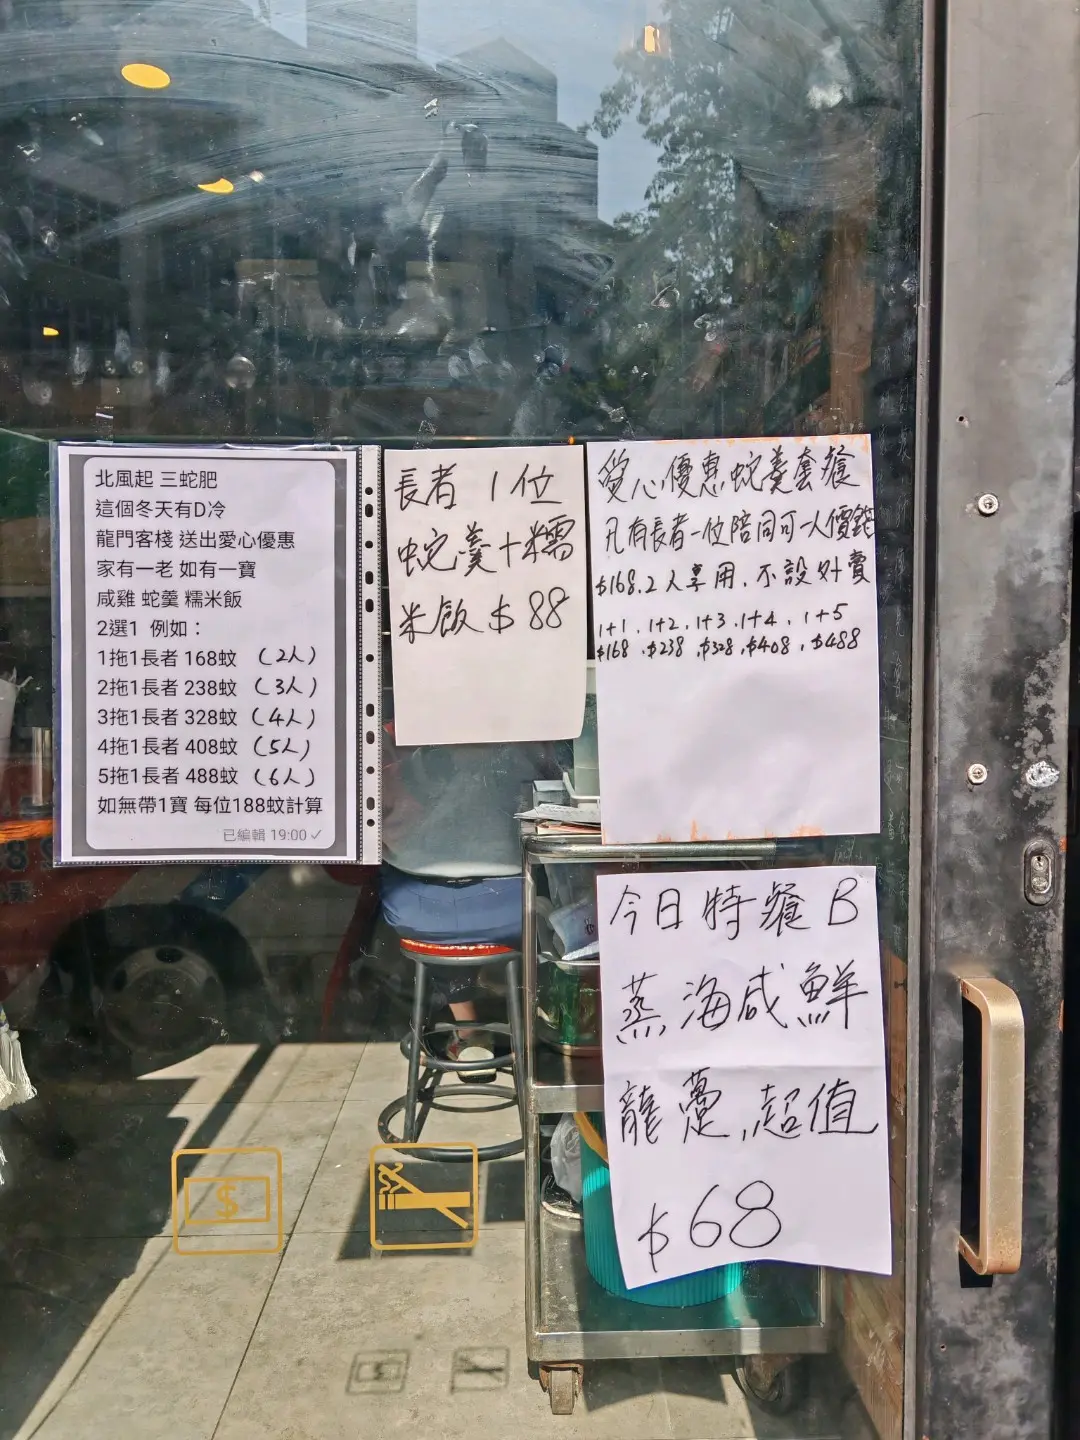 北風起 三蛇肥
這個冬天有D冷
龍門客棧 送出愛心優惠
家有一老 如有一寶
咸雞 蛇羹 糯米飯
2選1 例如：
1拖1長者 168蚊 (2人)
2拖1長者 238蚊 (3人)
3拖1長者 328蚊 (4人)
4拖1長者 408蚊 (5人)
5拖1長者 488蚊 (6人)
如無帶1寶 每位188蚊計算
已編輯 19:00 ✓
長者 1位
蛇羹+糯
米飯 $88
愛心優惠蛇羹套餐
凡有長者一位陪同可一人價錢
$168.2人享用.不設外賣
1+1 .1+2 .1+3 .1+4 .1+5
$168 .$238 .$328 .$408 .$488
今日特餐B
蒸海咸鮮
龍躉.超值
$68
$